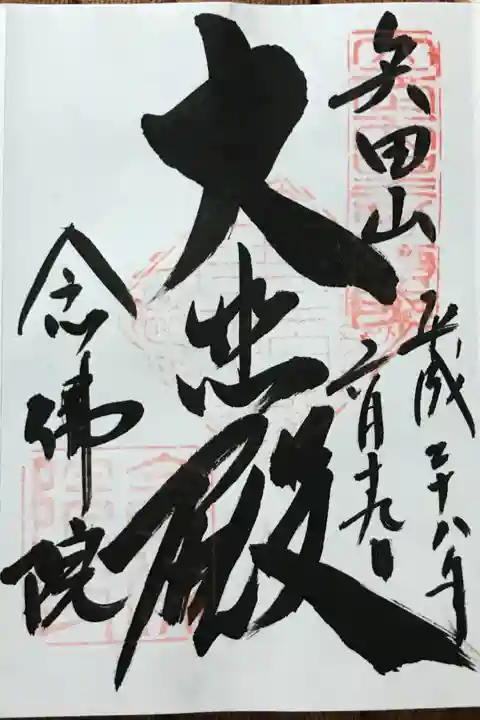 矢田山
平成二十八年
二月十九日
大悲殿
念佛院